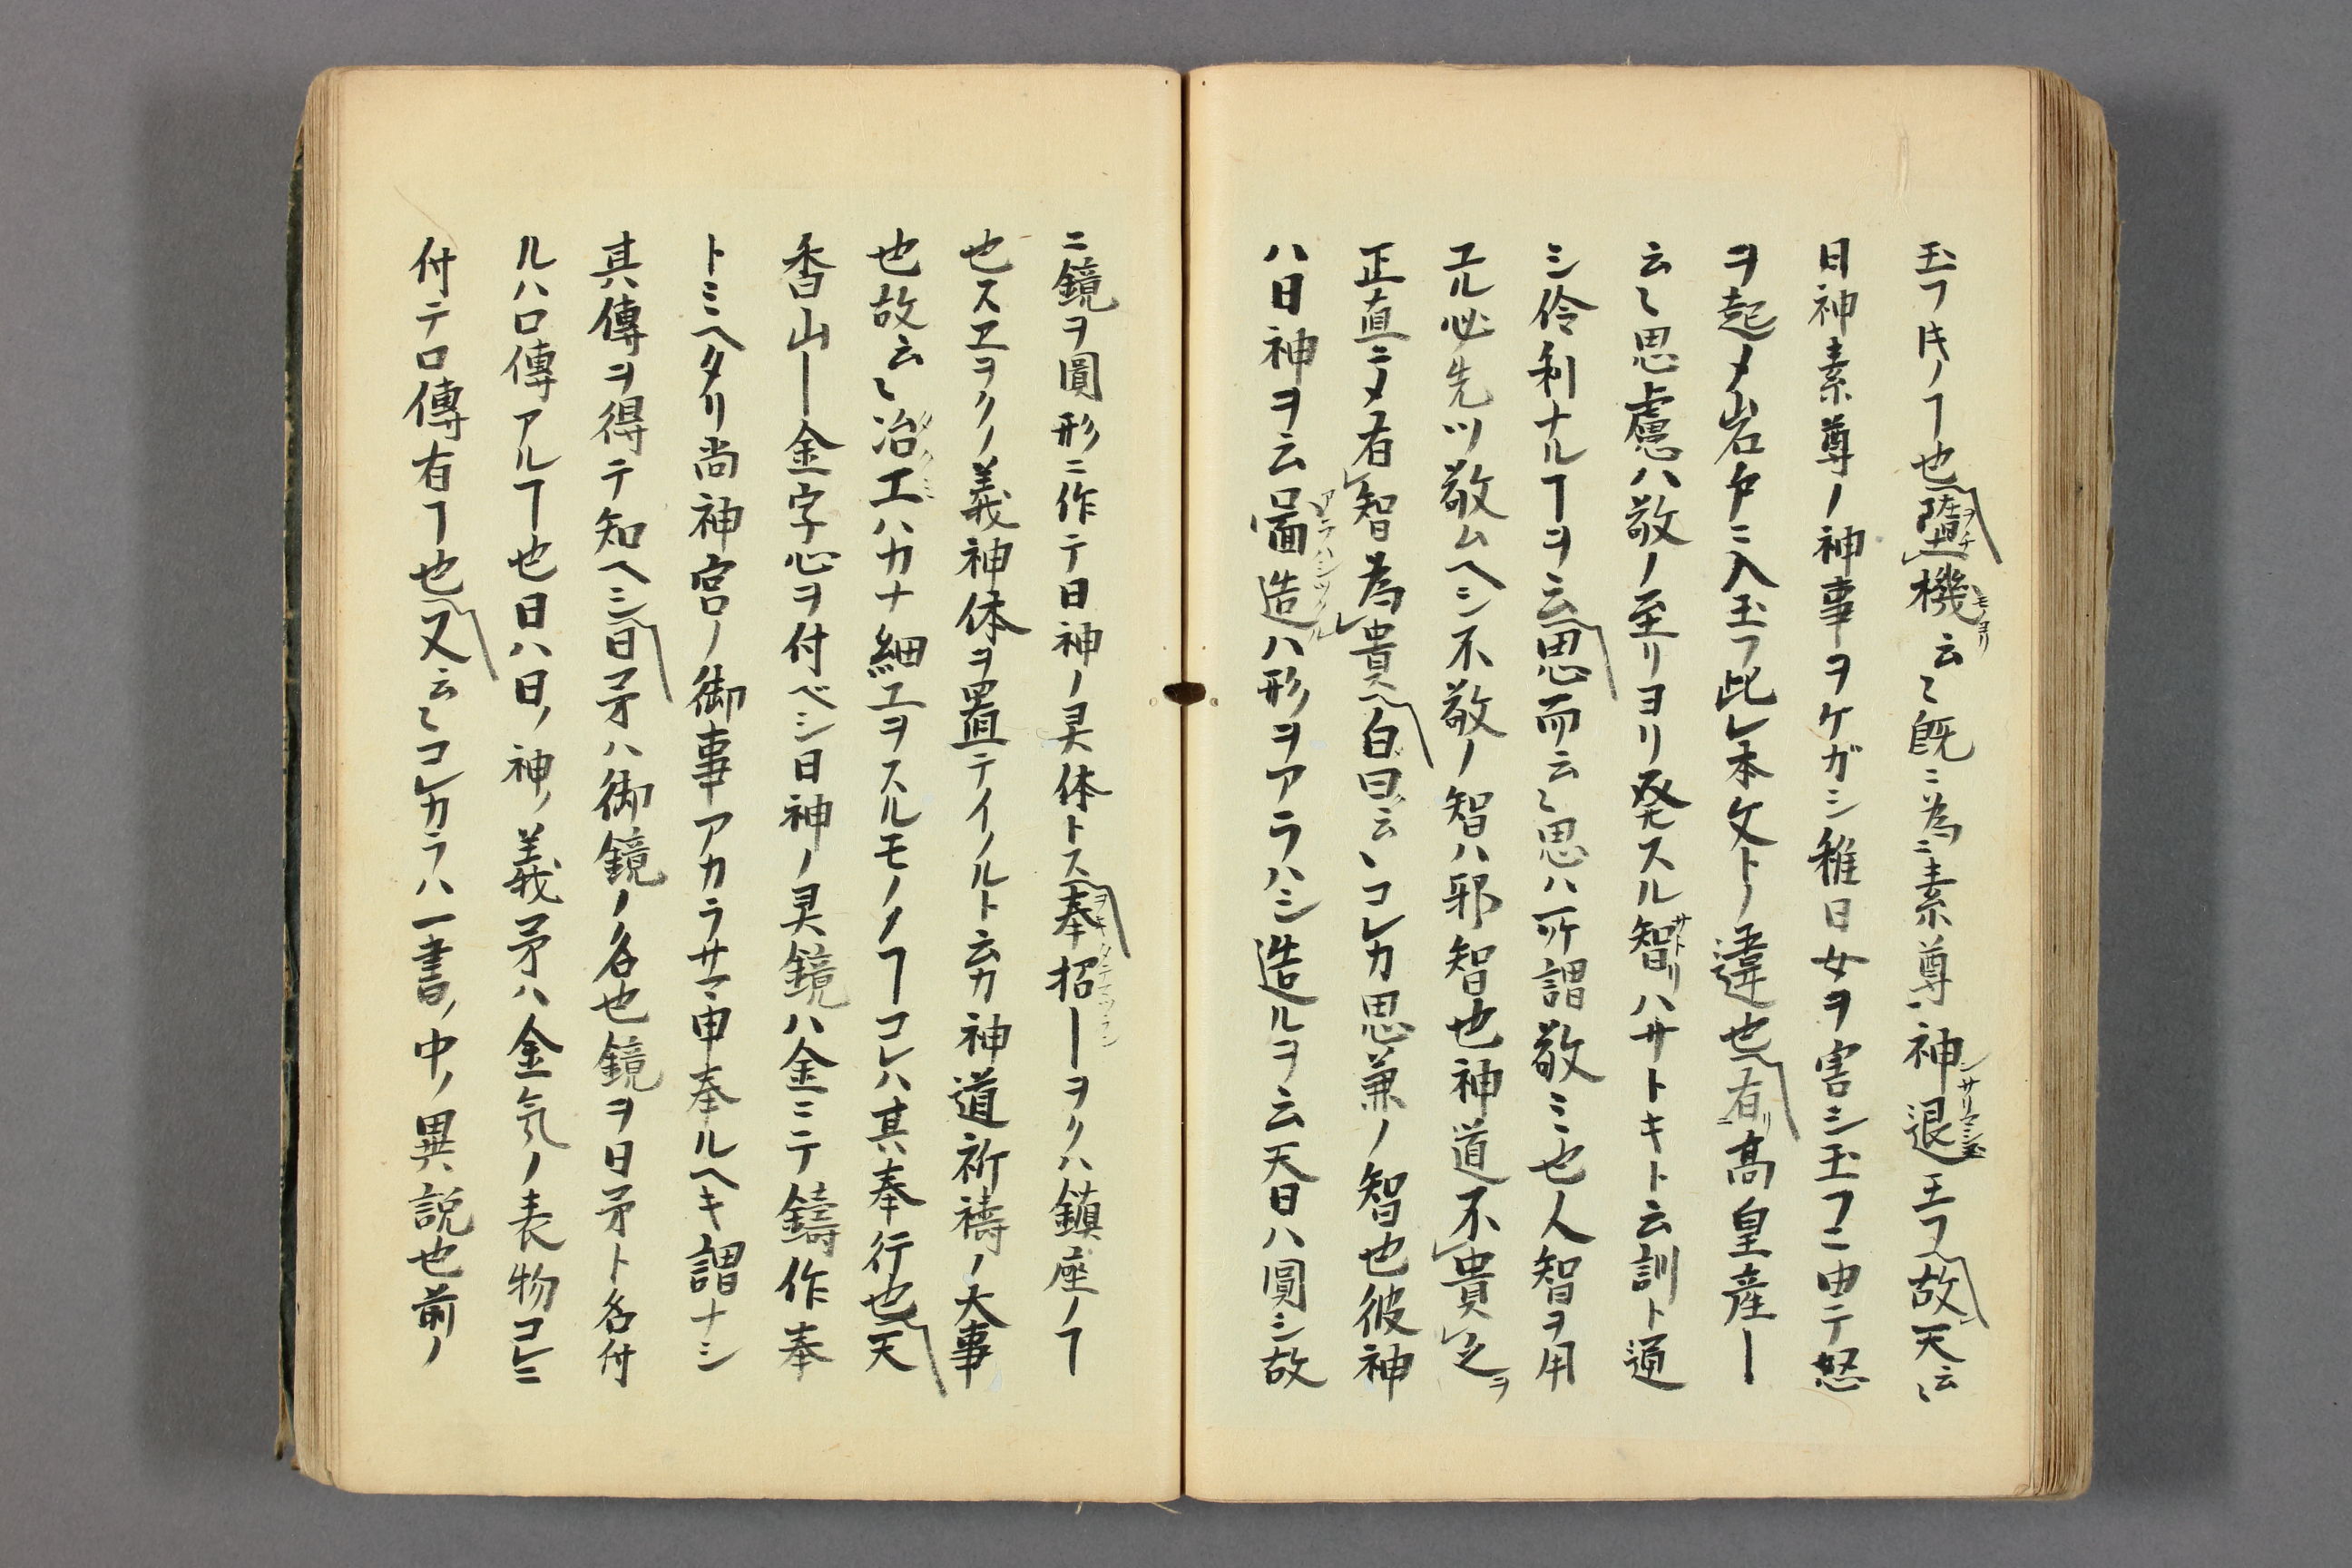 玉フ𪜈ノヿ也堕機云〻既ニ為ニ素尊神退玉フ故天云〻
日神素尊ノ神事ヲケガシ稚日女ヲ害シ玉フニ由テ怒
ヲ起メ岩戸ニ入玉フ此レ本文トノ違也有髙皇産ー
云〻思慮ハ敬ノ至リヨリ発スル智ハサトキト云訓ト通
シ伶利ナルヿヲ云思而云〻思ハ所謂敬ミ也人智ヲ用
エル必先ツ敬ムヘシ不敬ノ智ハ邪智也神道不貴之ヲ
正直ニメ有智為貴白曰云〻コレカ思兼ノ智也彼神
ハ日神ヲ云啚造ハ形ヲアラハシ造ルヲ云天日ハ圓シ故
ニ鏡ヲ圓形ニ作テ日神ノ㚑体トス奉招ーヲクハ鎮座ノヿ
也スヱヲクノ義神体ヲ置テイノルト云カ神道祈祷ノ大事
也故云〻冶工ハカナ細工ヲスルモノヽヿコレハ其奉行也天
香山ー金字心ヲ付ベシ日神ノ㚑鏡ハ金ニテ鑄作奉
トミヘタリ尚神宮ノ御事アカラサマ申奉ルヘキ謂ナシ
其傳ヲ得テ知ヘシ日矛ハ御鏡ノ名也鏡ヲ日矛ト名付
ルハ口傳アルヿ也日ハ日ノ神ノ義矛ハ金気ノ表物コレニ
付テ口傳有ヿ也又云〻コレカラハ一書ノ中ノ異説也前ノ